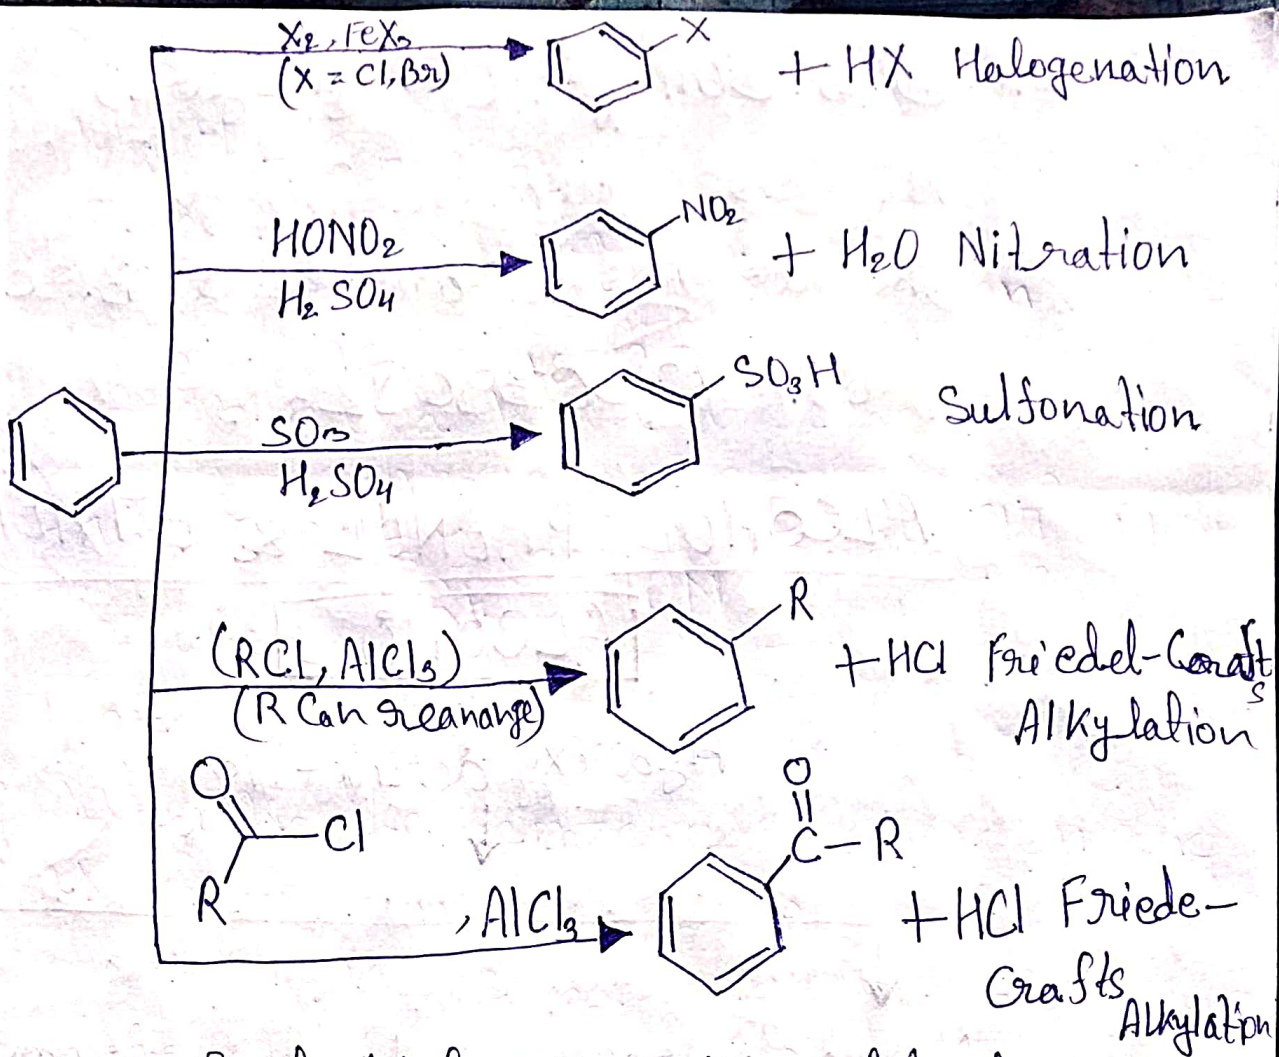 X2, FeX3
(X = Cl, Br)
X
+ HX Halogenation
HONO2
H2SO4
NO2
+ H2O Nitration
n
SO3
H2SO4
SO3H
Sulfonation
(RCl, AlCl3)
(R Can rearrange)
R
+HCl Friedel-Crafts
Alkylation
O
Cl
R
, AlCl3
O
C-R
+HCl Friede-
Crafts
Alkylation